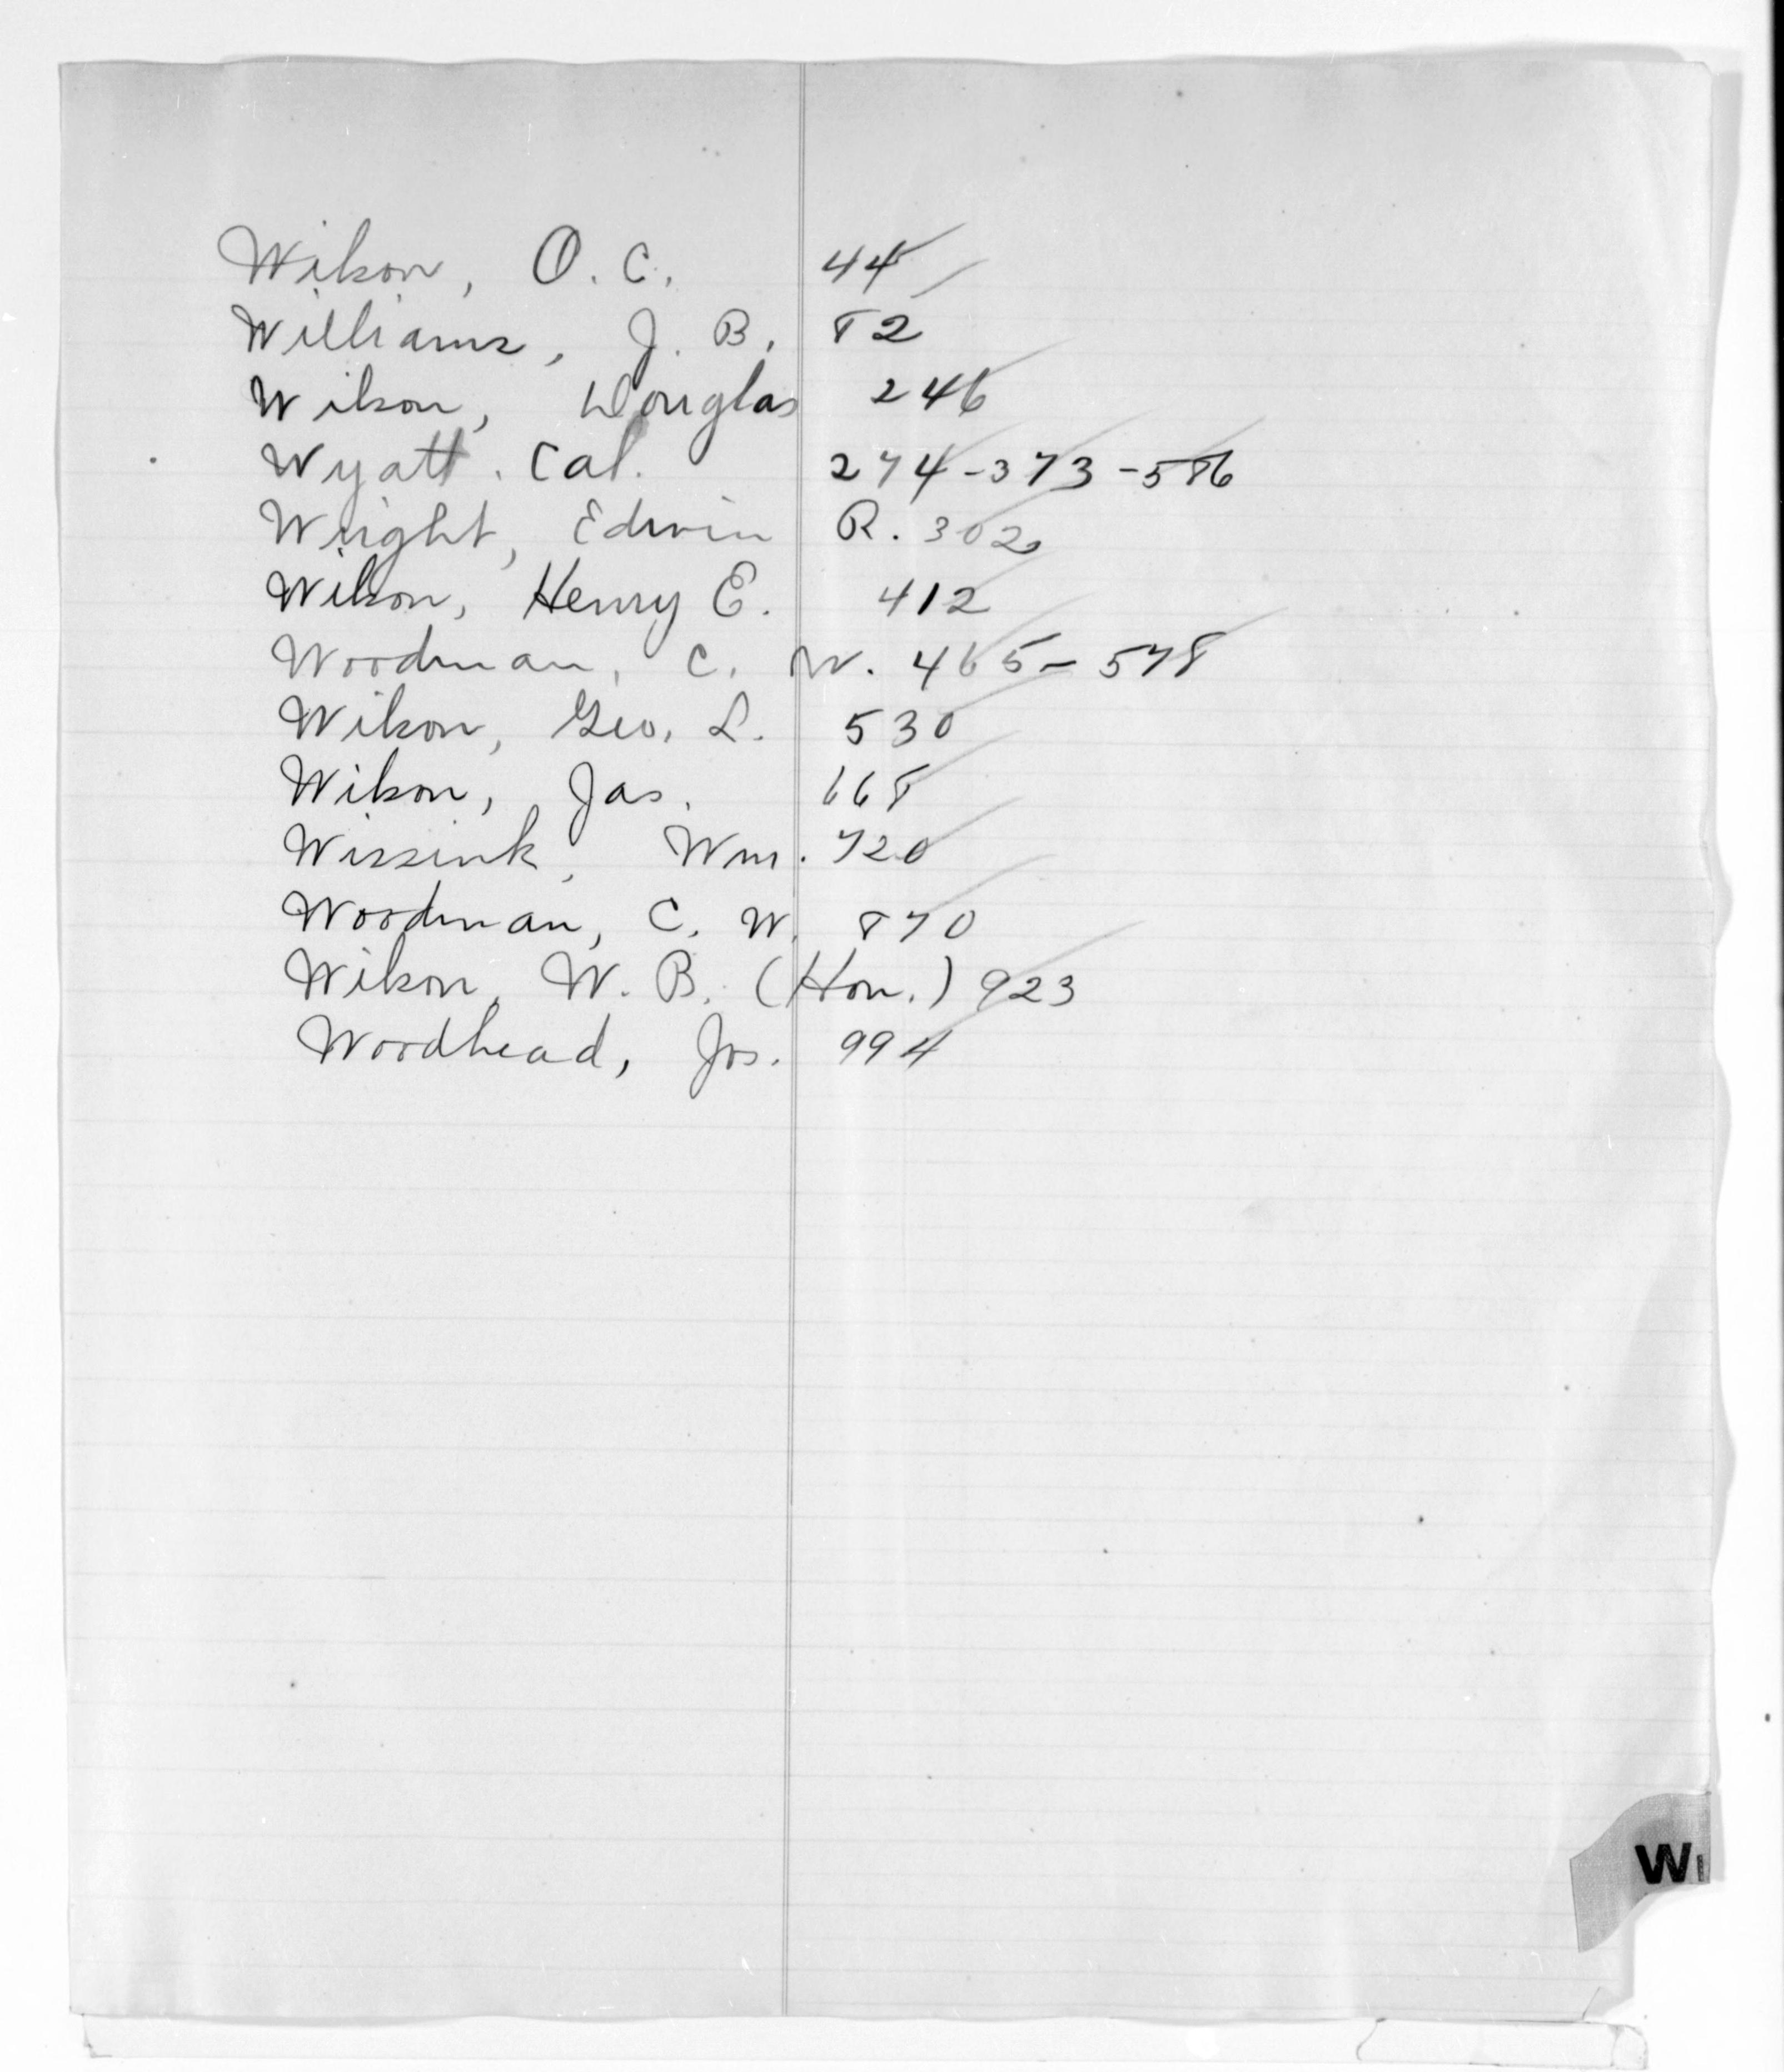 Wilson, O. C. 44
Williams, J. B. 82
Wilson, Douglas 246
Wyatt, Cal. 274-373-586
Wright, Edwin R. 302
Wilson, Henry E. 412
Woodman, C. W. 465-578
Wilson, Geo. L. 530
Wilson, Jas. 668
Wissink, Wm. 720
Woodman, C. W. 870
Wilson, W. B. (Hon.) 923
Woodhead, Jos. 994
W